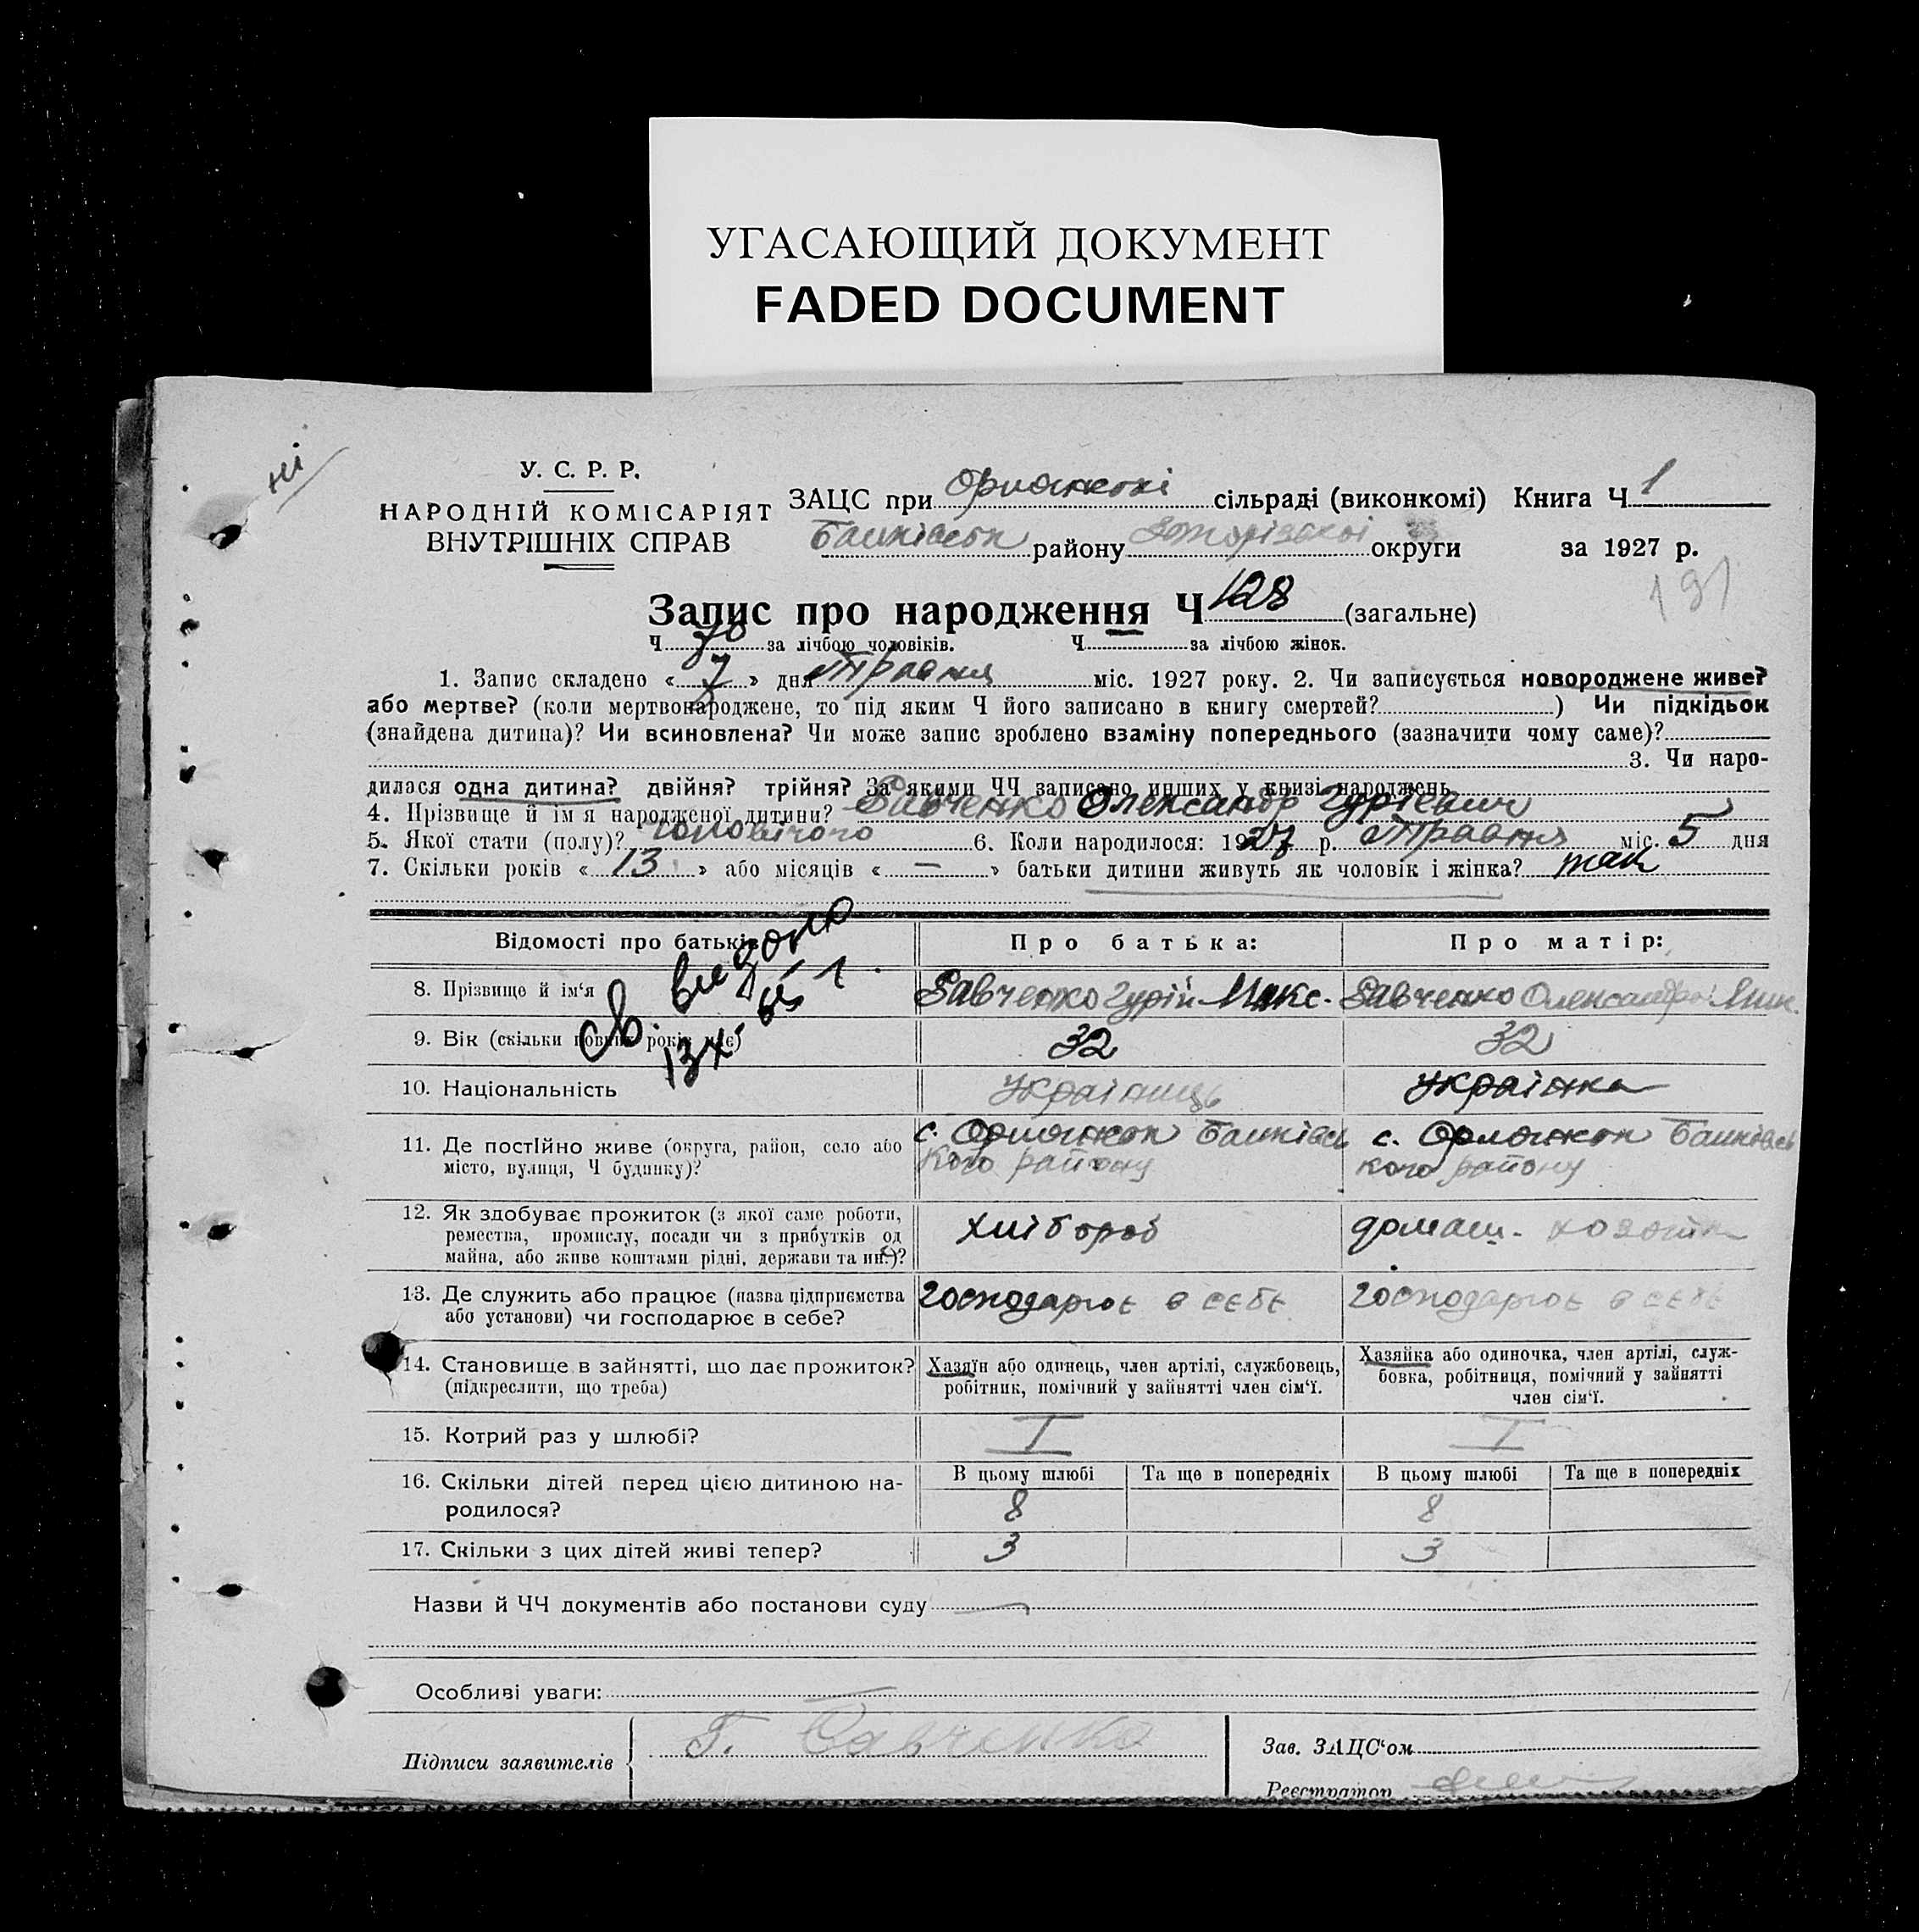 УГАСАЮЩИЙ ДОКУМЕНТ
FADED DOCUMENT
ні
У. С. Р. Р.
НАРОДНІЙ КОМІСАРІЯТ
ВНУТРІШНІХ СПРАВ
ЗАЦС при сільраді (виконкомі) Книга Ч 1
району округи за 1927 р.
191
Запис про народження Ч 128 (загальне)
Ч 70 за лічбою чоловіків. Ч за лічбою жінок.
1. Запис складено « 7 » дня травня міс. 1927 року. 2. Чи записується новороджене живе?
або мертве? (коли мертвонароджене, то під яким Ч його записано в книгу смертей? ) Чи підкідьок
(знайдена дитина)? Чи всиновлена? Чи може запис зроблено взаміну попереднього (зазначити чому саме)?
3. Чи наро-
дилася одна дитина? двійня? трійня? За якими ЧЧ записано инших у книзі народжень
4. Прізвище й ім'я народженої дитини? Савченко Олександр Гурієвич
5. Якої стати (полу)? чоловічого 6. Коли народилося: 1927 р. травня міс. 5 дня
7. Скільки років « 13 » або місяців « — » батьки дитини живуть як чоловік і жінка? так
Відомості про батьків Про батька: Про матір:
Св. видано
13 X- 65 г.
8. Прізвище й ім'я Савченко Гурій Макс. Савченко Олександра
9. Вік (скільки повних років має) 32 32
10. Національність Українець Українка
11. Де постійно живе (округа, район, село або
місто, вулиця, Ч будинку)?
с. с.
кого району кого району
12. Як здобуває прожиток (з якої саме роботи,
ремества, промислу, посади чи з прибутків од
майна, або живе коштами рідні, держави та ин.)?
хлібороб домаш.
13. Де служить або працює (назва підприємства
або установи) чи господарює в себе?
господарює в себе господарює в себе
14. Становище в зайнятті, що дає прожиток?
(підкреслити, що треба)
Хазяїн або одинець, член артілі, службовець,
робітник, помічний у зайнятті член сім'ї.
Хазяйка або одиночка, член артілі, служ-
бовка, робітниця, помічний у зайнятті
член сім'ї.
15. Котрий раз у шлюбі? I I
16. Скільки дітей перед цією дитиною на-
родилося?
В цьому шлюбі Та ще в попередніх В цьому шлюбі Та ще в попередніх
8 8
17. Скільки з цих дітей живі тепер? 3 3
Назви й ЧЧ документів або постанови суду —
Особливі уваги:
Підписи заявителів Г. Савченко
Зав. ЗАЦС'ом
Реєстратор